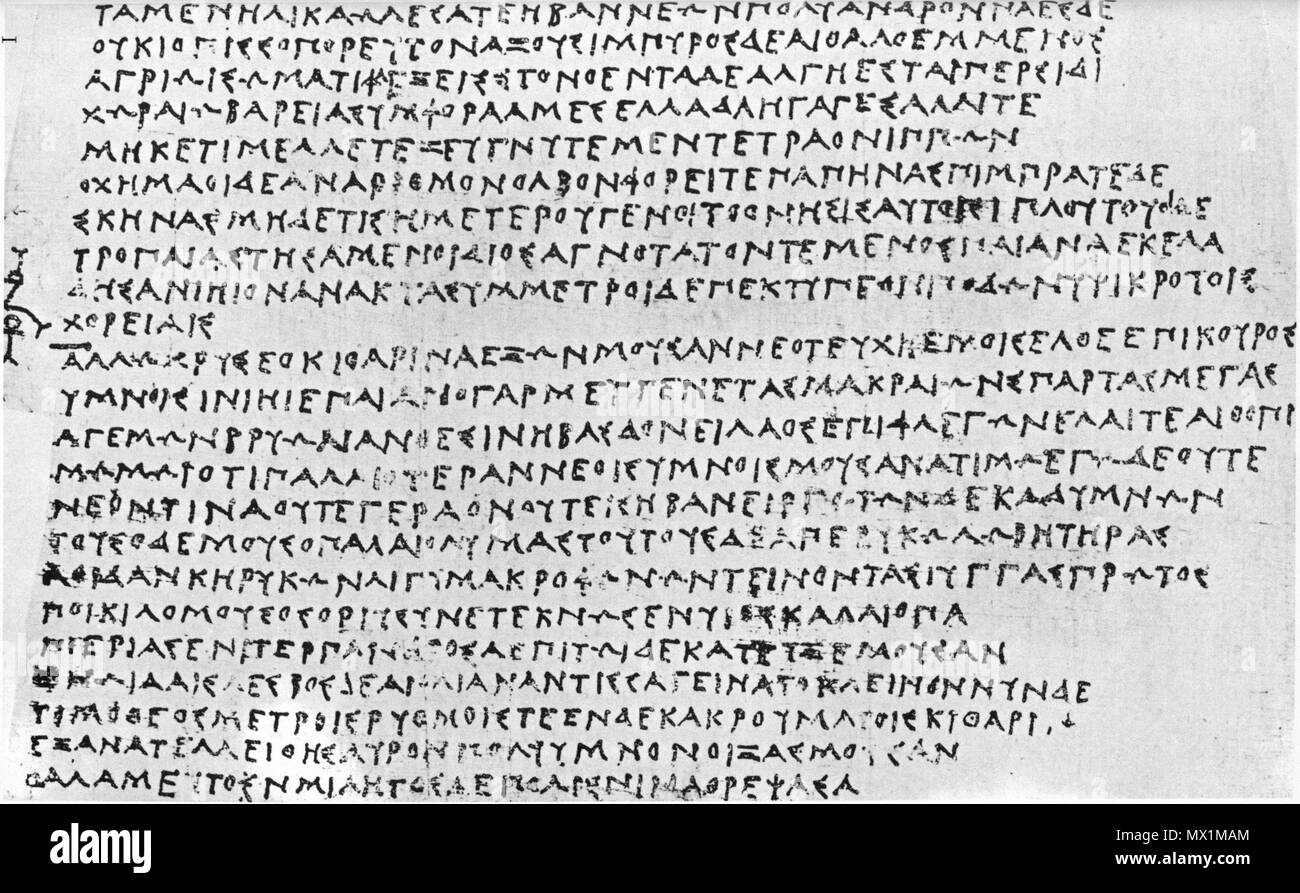 ΤΑΜΕΝΗΛΙΚΑΛΛΕΣΑΤΕΗΒΑΝΝΕΩΝΠΟΛΥΑΝΔΡΟΝΝΑΕΣΔΕ
ΟΥΚΙΟΠΙΣΣΟΠΟΡΕΥΤΟΝΑΞΟΥΣΙΜΠΥΡΟΣΔΕΑΙΘΑΛΟΕΜΜΕΝΟΣ
ΑΓΡΙΩΙΣΩΜΑΤΙΦΛΕΞΕΙΣΤΟΝΟΕΝΤΑΔΕΑΛΓΗΕΣΤΑΙΠΕΡΣΙΔΙ
ΧΩΡΑΙΩΒΑΡΕΙΑΣΥΜΦΟΡΑΑΜΕΣΕΛΛΑΔΑΗΓΑΓΕΣΑΛΛΙΤΕ
ΜΗΚΕΤΙΜΕΛΛΕΤΕΖΕΥΓΝΥΤΕΜΕΝΤΕΤΡΑΟΝΙΠΠΩΝ
ΟΧΗΜΑΟΙΔΕΑΝΑΡΙΘΜΟΝΟΛΒΟΝΦΟΡΕΙΤΕΠΑΠΗΝΑΣΠΙΜΠΡΑΤΕΔΕ
ΣΚΗΝΑΣΜΗΔΕΤΙΣΗΜΕΤΕΡΟΥΓΕΝΟΙΤΟΟΝΗΣΙΣΑΥΤΟΙΣΙΠΛΟΥΤΟΥΟΙΔΕ
ΤΡΟΠΑΙΑΣΤΗΣΑΜΕΝΟΙΔΙΟΣΑΓΝΟΤΑΤΟΝΤΕΜΕΝΟΣΠΑΙΑΝΑΕΚΕΛΑ
ΔΗΣΑΝΙΗΙΟΝΑΝΑΚΤΑΣΥΜΜΕΤΡΟΙΔΕΠΕΚΤΥΠΕΟΝΠΟΔΩΝΥΨΙΚΡΟΤΟΙΣ
ΧΟΡΕΙΑΙΣ
ΑΛΛΩΧΡΥΣΕΟΚΙΘΑΡΙΝΑΕΞΩΝΜΟΥΣΑΝΝΕΟΤΕΥΧΗΕΜΟΙΣΕΛΘΕΕΠΙΚΟΥΡΟΣ
ΥΜΝΟΙΣΙΝΙΗΙΕΠΑΙΑΝΟΓΑΡΜΕΥΓΕΝΕΤΑΣΜΑΚΡΑΙΩΝΣΠΑΡΤΑΣΜΕΓΑΣ
ΑΓΕΜΩΝΒΡΥΩΝΑΝΘΕΣΙΝΗΒΑΣΔΟΝΕΙΛΑΟΣΕΠΙΦΛΕΓΩΝΕΛΑΙΤΕΑΙΘΟΠΙ
ΜΩΜΩΙΟΤΙΠΑΛΑΙΟΤΕΡΑΝΝΕΟΙΣΥΜΝΟΙΣΜΟΥΣΑΝΑΤΙΜΩΕΓΩΔΕΟΥΤΕ
ΝΕΟΝΤΙΝΑΟΥΤΕΓΕΡΑΟΝΟΥΤΕΙΣΗΒΑΝΕΙΡΓΩΤΩΝΔΕΚΑΔΥΜΝΩΝ
ΤΟΥΣΔΕΜΟΥΣΟΠΑΛΑΙΟΛΥΜΑΣΤΟΥΤΟΥΣΔΕΑΠΕΡΥΚΩΛΩΒΗΤΗΡΑΣ
ΑΟΙΔΑΝΚΗΡΥΚΩΝΛΙΓΥΜΑΚΡΟΦΩΝΩΝΤΕΙΝΟΝΤΑΣΙΥΓΓΑΣΠΡΩΤΟΣ
ΠΟΙΚΙΛΟΜΟΥΣΟΣΟΡΙΥΣΥΝΕΤΕΚΝΩΣΕΝΥΙΟΣΚΑΛΛΙΟΠΑ
ΠΙΕΡΙΑΣΕΝΙΤΕΡΠΑΝΔΡΟΣΔΕΠΙΤΩΙΔΕΚΑΤΕΥΞΕΜΟΥΣΑΝ
ΕΝΩΙΔΑΙΣΛΕΣΒΟΣΔΕΑΙΟΛΙΑΝΑΝΤΙΣΣΑΓΕΙΝΑΤΟΚΛΕΙΝΟΝΝΥΝΔΕ
ΤΙΜΟΘΕΟΣΜΕΤΡΟΙΣΡΥΘΜΟΙΣΤΕΕΝΔΕΚΑΚΡΟΥΜΑΤΟΙΣΚΙΘΑΡΙ
ΕΞΑΝΑΤΕΛΛΕΙΘΗΣΑΥΡΟΝΠΟΛΥΥΜΝΟΝΟΙΞΑΣΜΟΥΣΑΝ
ΘΑΛΑΜΕΥΤΟΝΜΙΛΗΤΟΣΔΕΠΟΛΙΣΝΙΝΑΘΡΕΨΑΣΑ
alamy
Image ID: MX1MAM
www.alamy.com